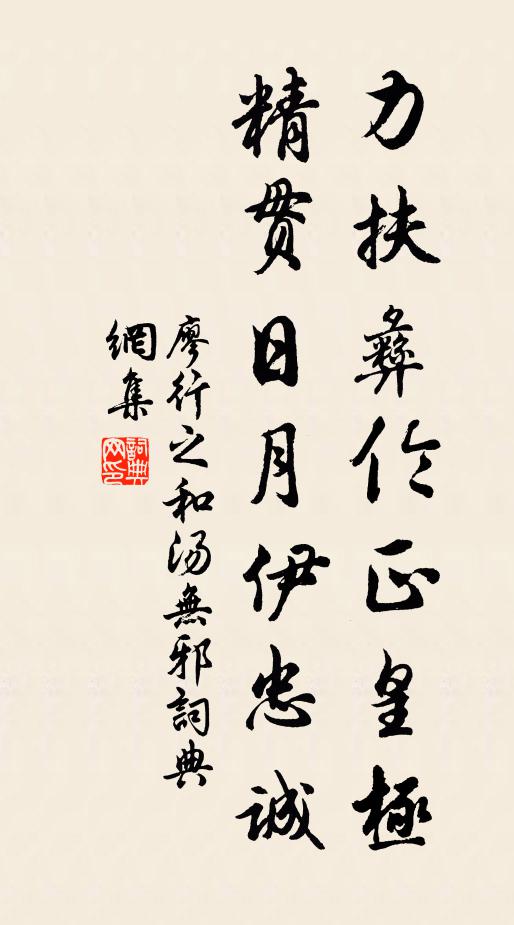 力扶彝伦正皇極
精貫日月伊忠誠
廖行之和汤無邪詞典
網集
詞典網印